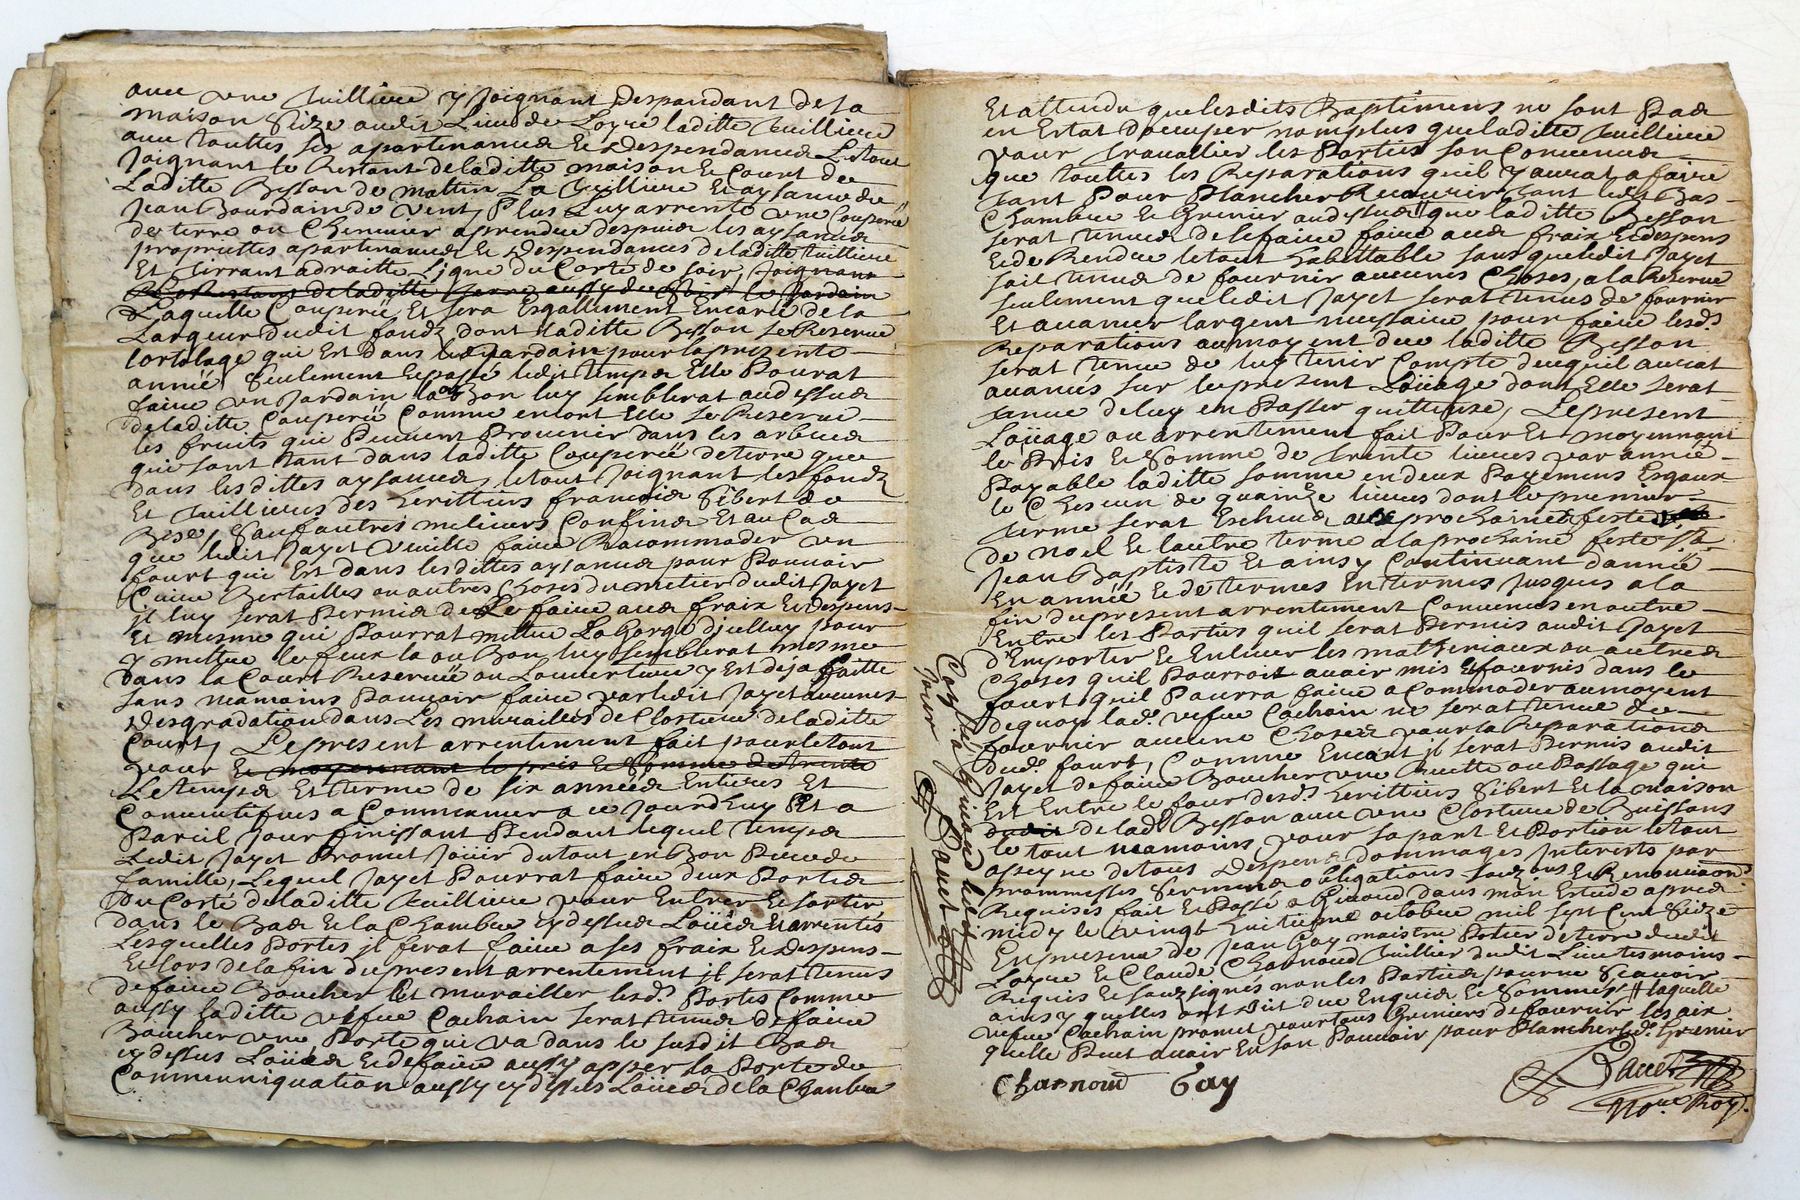 avec une tuilliere y joignant despandant de la
maison size audit Lieu de Loyre laditte tuilliere
avec touttes ses apartenances & despendances Le tout
joignant le Restant de laditte maison & Court de
Laditte Besson de mattin La tuilliere et aysance de
Jean Bourdain de vent, Plus Luy arrente une Couperie
de terre ou Chemin a prendre despuis les aysances
propriettes apartenances & despendances de laditte tuilliere
Et tirrant a draitte Ligne du Corté de soir, joignant
de laditte terre aussy de soir le Jardin
Laquelle Couperie Et sera Esgallement Encarté de la
Largeur dudit fondz dont Laditte Besson se Reserve
lortolage qui Est dans le jardain pour la presente
année, seulement Et passé ledit temps Elle Pourat
faire un jardain la ou Bon luy semblerat au dessus
de laditte Couperie Comme encont Elle se Reserve
les fruits qui Peuvent Provenir dans les arbres
qui sont tant dans laditte Couperie de terre que
dans lesdittes aysances, le tout joignant les fondz
Et tuillieres des herittiers francois Gibert de
Bise, Sauf autres melieurs Confins Et au Cas
que ledit Jayet veuille faire Racommoder un
fourt qui Est dans lesdittes aysances pour Pouvoir
Cuire Bertailles ou autres Choses du metier dudit Jayet
il luy serat Permis de Le faire aux fraix & despens
Et mesme qui Pourrat mettre La Gorge d'icelluy pour
y mettre le feux la ou Bon luy semblerat mesme
dans la Court Reservée ou Louverture y Est deja faitte
sans neamains Pouvoir faire par ledit Jayet aucunes
desgradation dans Les murailles de Clorture de laditte
Court, Le present arrentement fait pour le tout
pour & moyennant le pris & somme de trente
Le temps Et terme de six années Entieres Et
Consecutifves a Commencer a ce jourdhuy Et a
Pareil jour finissant Pendant lequel temps
Ledit Jayet Promet Jouir du tout en Bon Pere de
famille, Lequel Jayet Pourrat faire deux Portes
du Corté de laditte tuilliere pour Entrer & sortir
dans le Bas & la Chambre cy dessus Loüés & arrentés
Lesquelles Portes il ferat faire a ses fraix & despens
Et lors de la fin du present arrentement il serat tenus
de faire Boucher Et murailler lesd. Portes Comme
aussy laditte vefve Cachain serat tenue de faire
Boucher une Porte qui va dans le susdit Bas
cy dessus Loüés & de faire aussy apper la Porte de
Communiquation aussy cy dessus Loüés de la Chambre
Et attendu que lesdits Baptimens ne sont Pas
en Estat d'occuper nomplus que laditte tuilliere
pour travallier les Parties son Convenues
que touttes les Reparations quil y aurat a faire
tant Pour Plancher Recouvrir tant ledt Bas
Chambre & Grenier au dessus // que laditte Besson
serat tenues de le faire faire aux fraix & despens
& de Rendre le tout habittable sans que ledit Jayet
soit tenus de fournir aucunes Choses, a la Reserve
seulement que ledit Jayet serat tenus de fournir
Et avancer largent necessaire pour faire lesd.
Reparations au moyent de ce laditte Besson
serat tenue de luy tenir Compte de ce quil aurat
avancés sur le present Loüage dont Elle serat
tenue de luy en Passer quittense, Le present
Loüage ou arrentement fait Pour Et moyennant
le Pris & Somme de trente livres par année
Payable laditte somme en deux Payemens Esgaux
le Chescun de quainze livres dont le premier
terme serat Escheus a la prochaine feste
de noel & lautre terme a la prochaine feste St
Jean Baptiste Et ainsy Continuant d'année
En année & de termes En termes jusques a la
fin du present arrentement Convenus en outre
Entre les Parties quil serat Permis audit Jayet
d'Emporter & Enlever les matheriaux ou autres
Choses quil Pourroit avoir mis & fournis dans le
fourt quil Pourra faire acommoder au moyent
de quoy lad. vefve Cachain ne serat tenue de
fournir aucune Choses pour la Reparations
dud. fourt, Comme Encont il serat Permis audit
Jayet de faire Boucher une Ruette ou Passage qui
Est Entre le four desd. herittiers Gibert & la maison
de lad. Besson avec une Clorture de Buissons
le tout neamoins pour sa part & Portion le tout
a peyne de tous despens dommages Interests par
prommesses sermens obligations Renonciaons
Requises fait & Passé a Givord dans mon Estude apres
midy le vingt huitiesme octobre mil sept Cent Seize
En presence de Jean Gay maistre Potier de terre dudit
Loyre & Claude Charnoud tuillier dudit Lieu tesmoins
Requis & souzsignés non les Parties pour ne sçavoir
ainsy quelles ont dit de ce Enquis & sommés // laquelle
vefve Cachain promet de fournir les aix
quelle Peut avoir En son Pouvoir pour Plancher led. Grenier
Charnoud Gay
Not.re Roy.